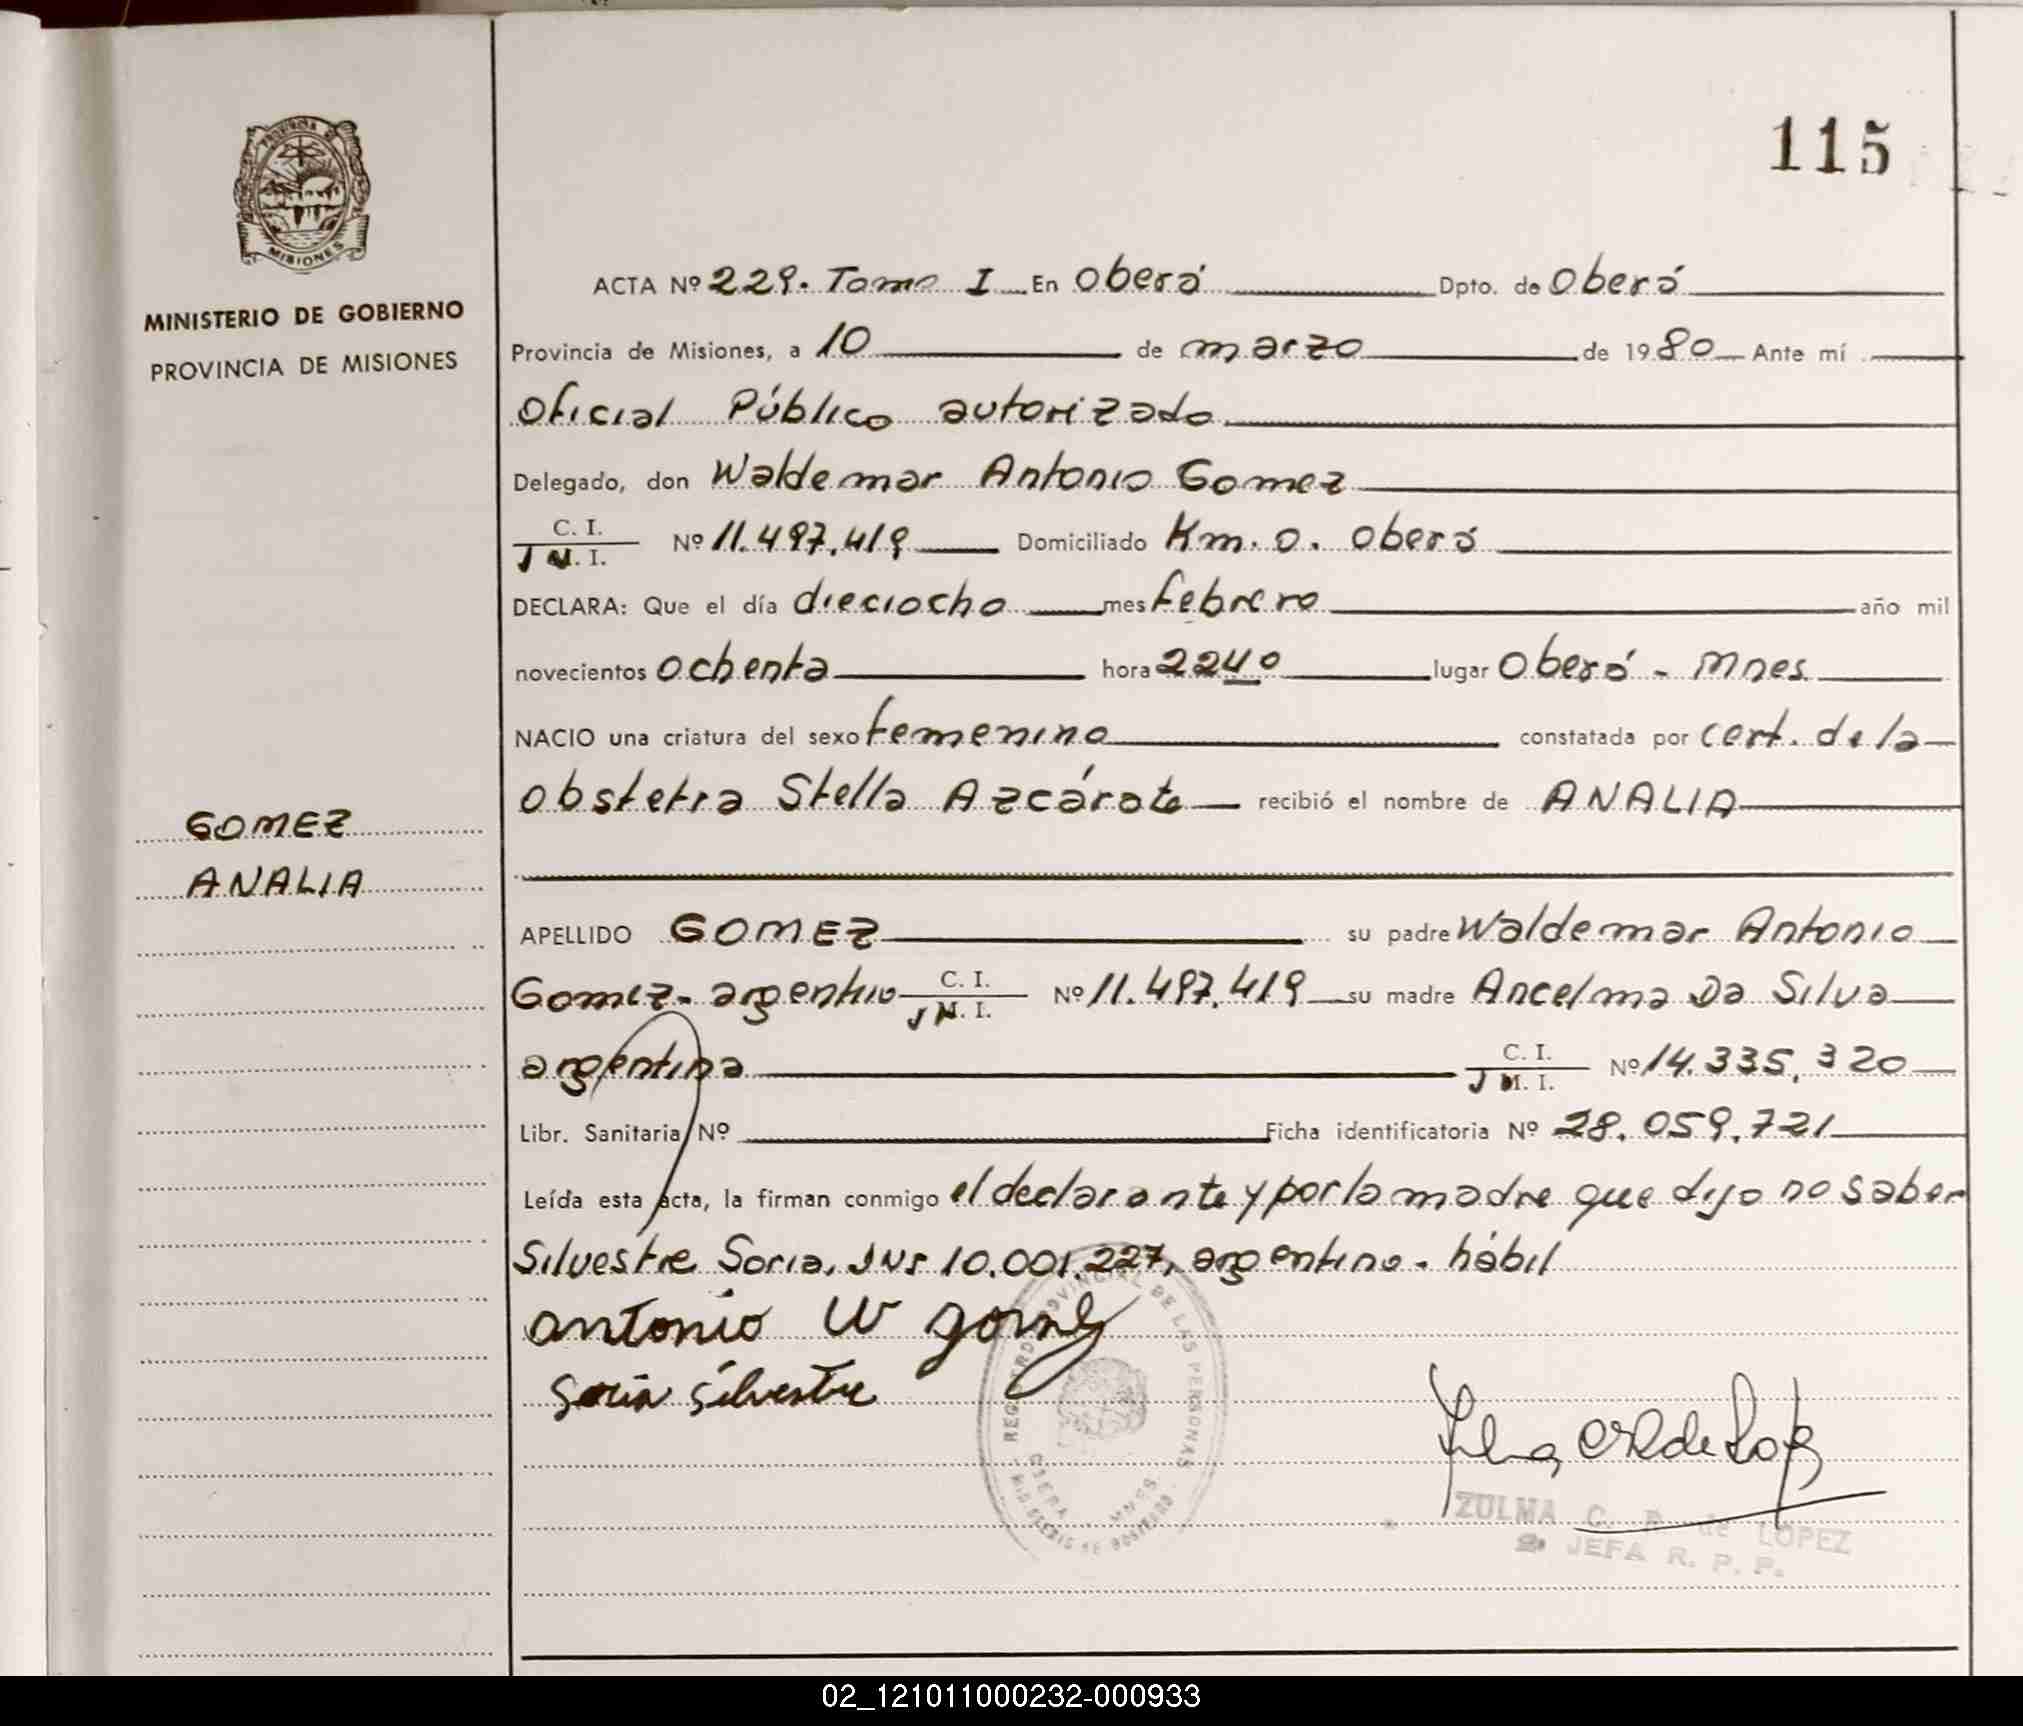 115
PROVINCIA DE
MISIONES
MINISTERIO DE GOBIERNO
PROVINCIA DE MISIONES
GOMEZ
ANALIA
ACTA Nº 229. Tomo I En Oberá Dpto. de Oberá
Provincia de Misiones, a 10 de marzo de 1980 Ante mí
Oficial Público autorizado
Delegado, don Waldemar Antonio Gomez
C. I.
M. I. Nº 11.497.419 Domiciliado Km. 0. Oberá
DECLARA: Que el día dieciocho mes febrero año mil
novecientos ochenta hora 2240 lugar Oberá - Mnes.
NACIO una criatura del sexo femenino constatada por cert. de la
obstetra Stella Azcárate recibió el nombre de ANALIA
APELLIDO GOMEZ su padre Waldemar Antonio
Gomez - argentino C. I. M. I. Nº 11.497.419 su madre Ancelma Da Silva
argentina C. I. M. I. Nº 14.335.320
Libr. Sanitaria Nº Ficha identificatoria Nº 28.059.721
Leída esta acta, la firman conmigo el declarante y por la madre que dijo no saber
Silvestre Soria, 10.001.227, argentino - hábil
antonio W gomez
Soria Silvestre
REGISTRO PROVINCIAL DE LAS PERSONAS
OBERA MNES.
ZULMA C. de LOPEZ
JEFA R. P. P.
02_121011000232-000933